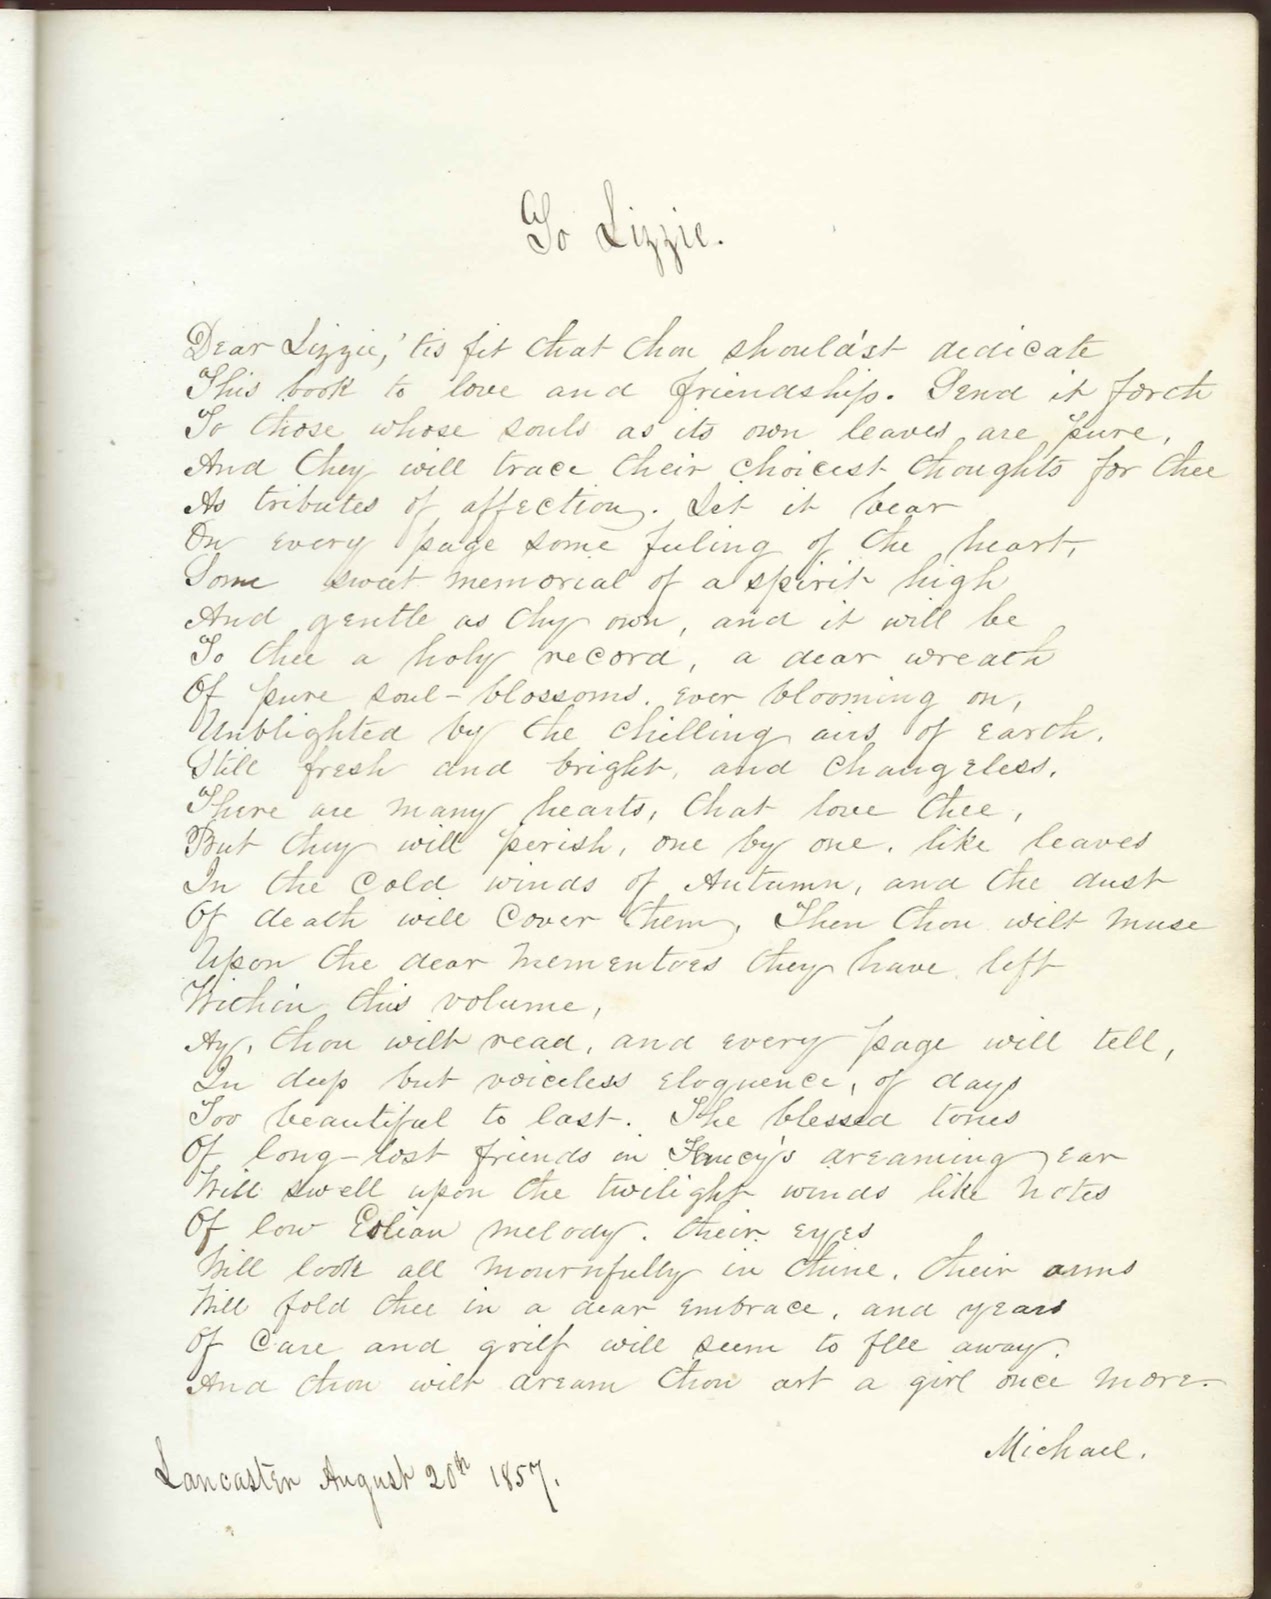 To Lizzie.
Dear Lizzie, 'tis fit that thou should'st dedicate
This book to love and friendship. Send it forth
To those whose souls as its own leaves are pure,
And they will trace their choicest thoughts for thee
As tributes of affection. Let it bear
On every page some feeling of the heart,
Some sweet memorial of a spirit high
And gentle as thy own, and it will be
To thee a holy record, a dear wreath
Of pure soul-blossoms. ever blooming on,
Unblighted by the chilling airs of earth.
Still fresh and bright, and changeless.
There are many hearts, that love thee,
But they will perish, one by one. like leaves
In the cold winds of Autumn, and the dust
Of death will cover them. Then thou wilt muse
Upon the dear mementoes they have left
Within this volume,
Ay, thou wilt read, and every page will tell,
In deep but voiceless eloquence, of days
Too beautiful to last. The blessed tones
Of long-lost friends in Fancy's dreaming ear
Will swell upon the twilight winds like notes
Of low Eolian melody. their eyes
Will look all mournfully in thine. their arms
Will fold thee in a dear embrace. and years
Of care and grief will seem to flee away.
And thou wilt dream thou art a girl once more.
Michael.
Lancaster August 20th 1857.